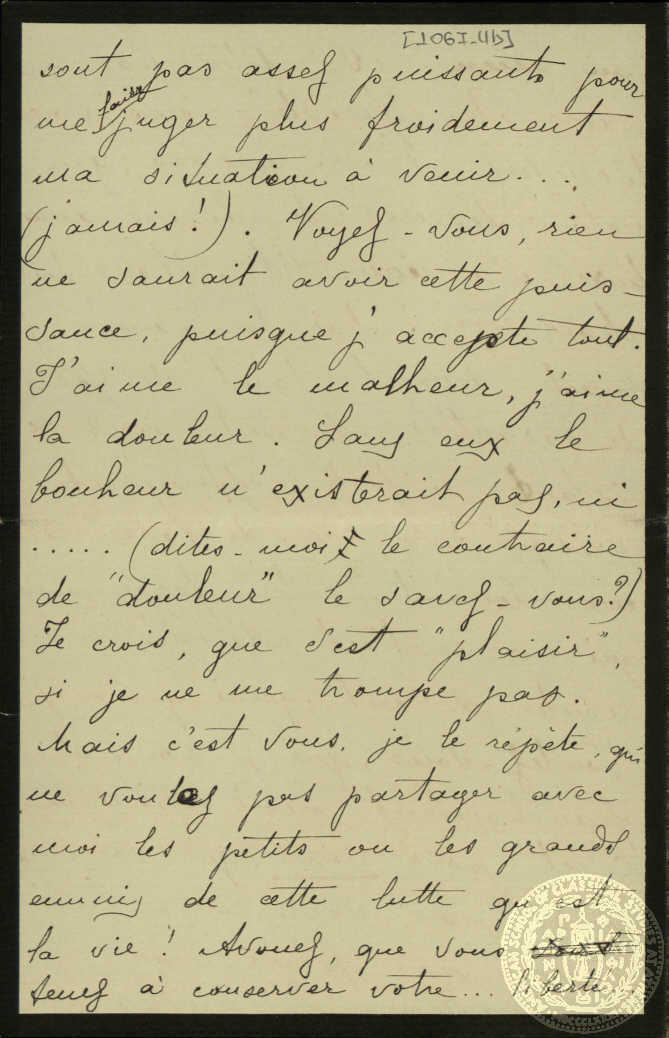 [1061-4b]
sont pas assez puissants pour
me faire juger plus froidement
ma situation à venir....
(jamais!). Voyez-vous, rien
ne saurait avoir cette puis-
sance, puisque j'accepte tout.
J'aime le malheur, j'aime
la douleur. Sans eux le
bonheur n'existerait pas, ni
..... (dites-moi le contraire
de "douleur" le savez-vous?)
Je crois, que c'est "plaisir",
si je ne me trompe pas.
Mais c'est vous, je le répète, qui
ne voulez pas partager avec
moi les petits ou les grands
ennuis de cette lutte qu'est
la vie! Avouez, que vous
tenez à conserver votre... liberté.